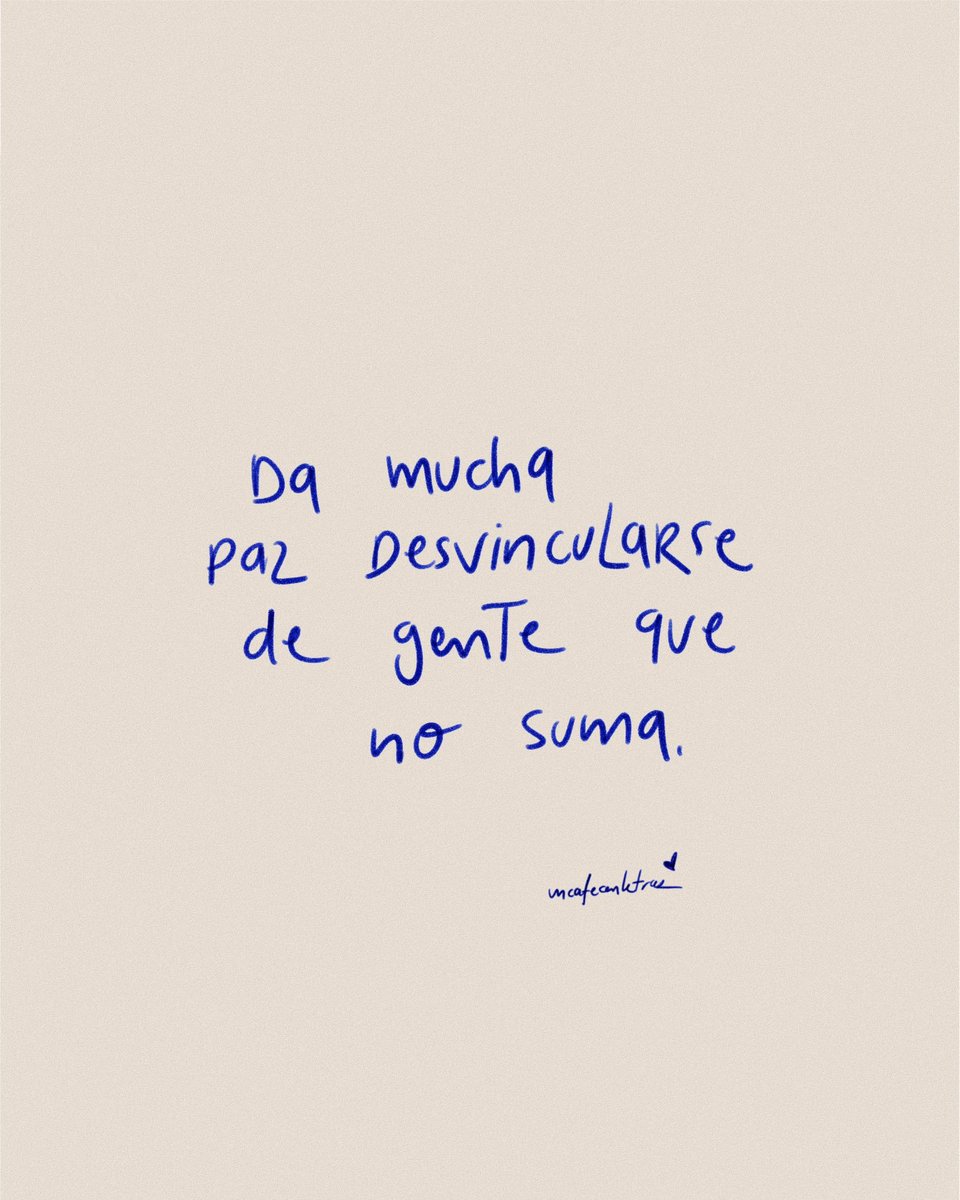 Da mucha
paz desvincularse
de gente que
no suma.
uncafeconletras